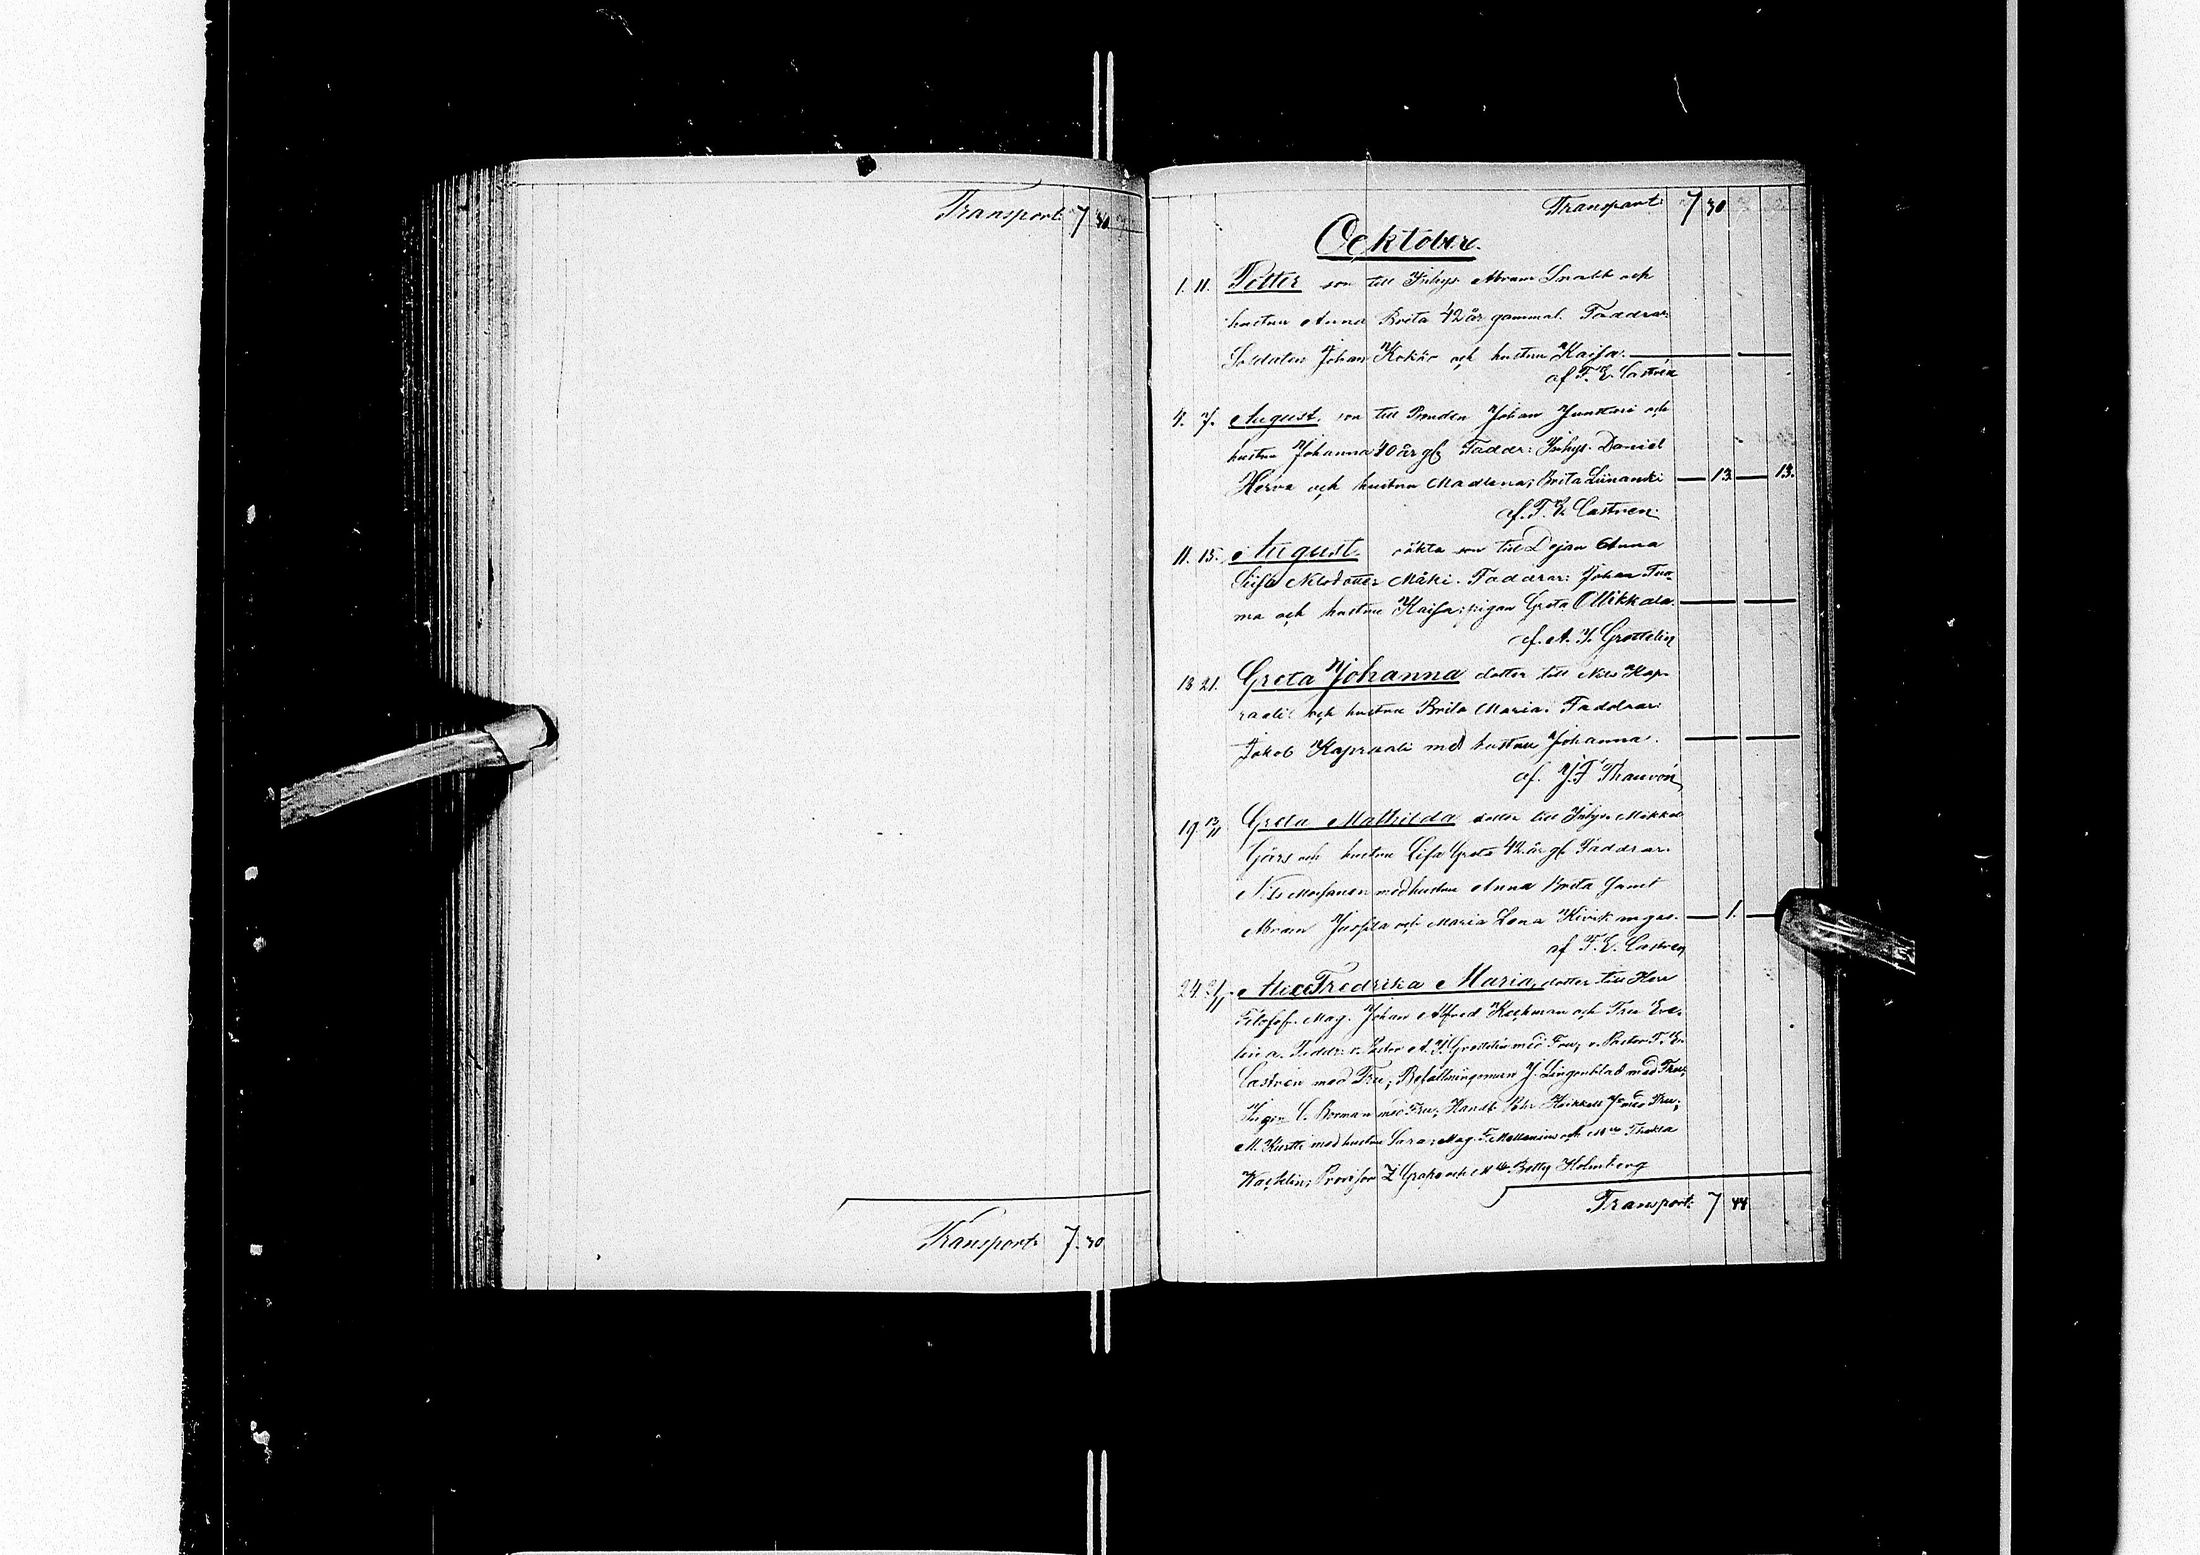 Transport: 7 30
Transport: 7. 30
Transport: 7 30
Ocktober.
1. 11. Petter son till Inhys. Abram Snabb och
hustru Anna Brita 42 år gammal. Faddrar:
Soldaten Johan Kokär och hustru Kaisa.
af F. E. Castrén
4. 7. August. son till Bonden Johan Junttari och
hustru Johanna 40 år gl. Faddr: Inhys. Daniel
Herva och hustru Madlena; Brita Liinanki 13 13.
af. F. E. Castren.
11. 15. August. oäkta son till Dejan Anna
Lisa Nilsdotter Mäki. Faddrar: Johan Tuo-
ma och hustru Kaisa; pigan Greta Ollikkala.
af. A. J. Grottelin
13 21. Greta Johanna dotter till Nils Kap-
raali och hustru Brita Maria. Faddrar:
Jakob Kapraali med hustru Johanna.
af. J. F. Thauvón
19 13/11 Greta Mathilda dotter till Inhys. Mikkel
och hustru Lisa Greta 42 år gl. Faddrar:
Nils med hustru Anna Brita samt
Abram Juspila och Maria Lena Kivikangas. 1.
af F. E. Castren
24 2/11. Alice Fredrika Maria, dotter till Herr
Filosof. Mag. Johan Alfred Keckman och Fru Eve-
lina. Faddr: v. Pastor A. J. Grottelin med Fru, v. Pastor F. E.
Castrén med Fru; Befallningsman J. Liegenblad med Fru;
C. Borman med Fru; Handl. Pehr Heikkell med Fru;
M. Kurtti med hustru Sara; Mag. F. och Thekla
Wacklin; Provisor Z. och Betty Holmberg
Transport: 7 44